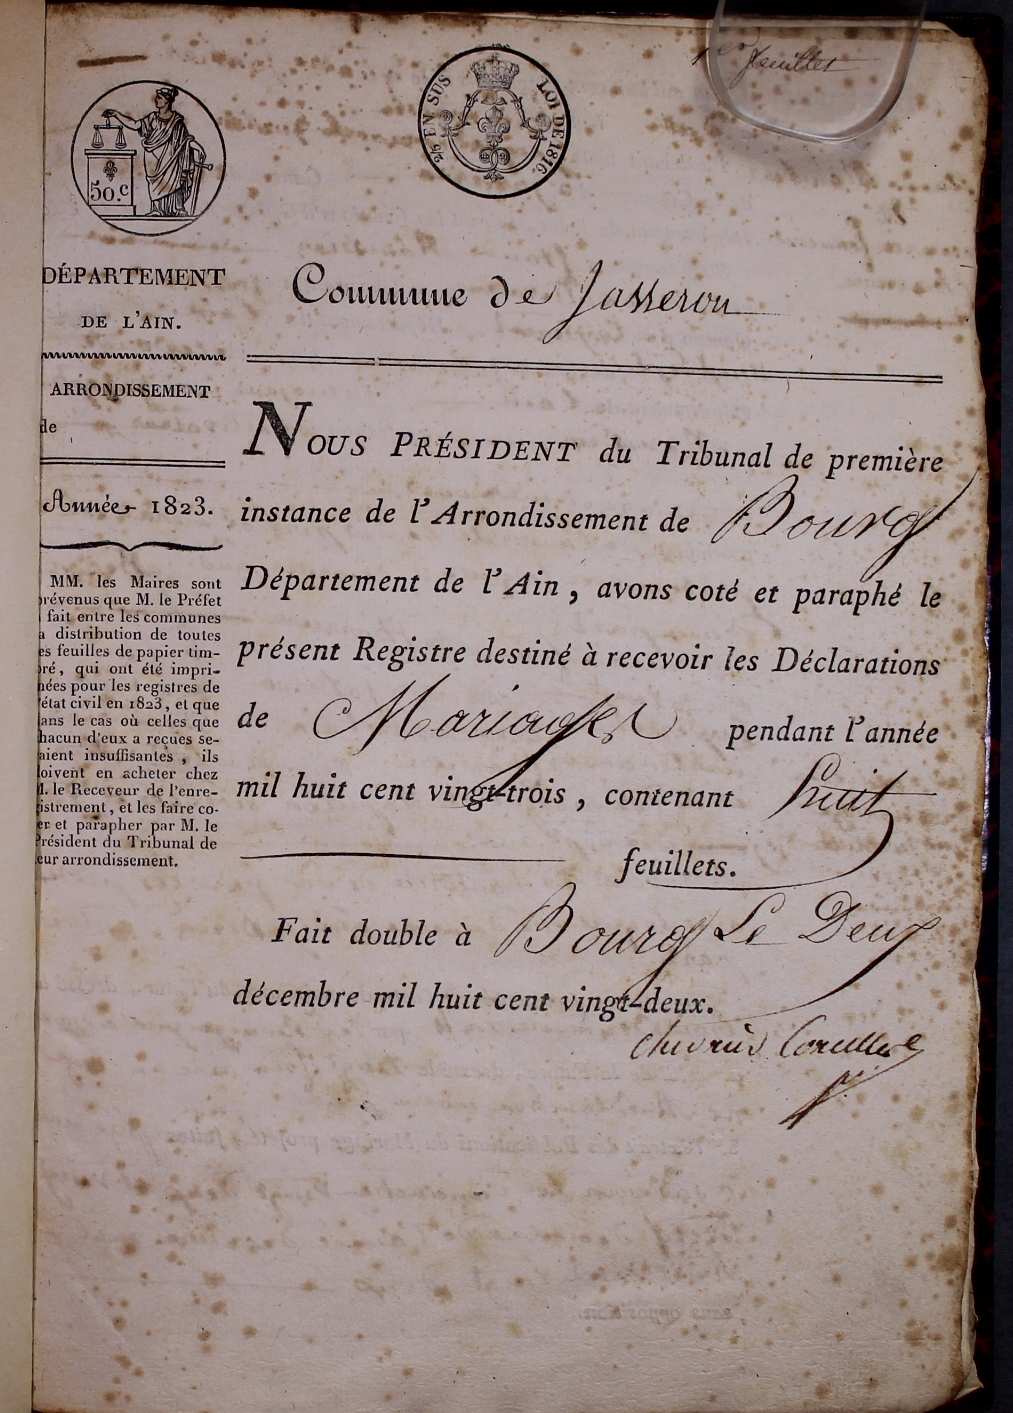 1er feuillet
2/5 EN SUS
LOI DE 1816.
50.c
DÉPARTEMENT
DE L'AIN.
ARRONDISSEMENT
de
Année 1823.
MM. les Maires sont
prévenus que M. le Préfet
fait entre les communes
a distribution de toutes
es feuilles de papier tim-
bré, qui ont été impri-
mées pour les registres de
l'état civil en 1823, et que
dans le cas où celles que
chacun d'eux a reçues se-
raient insuffisantes, ils
doivent en acheter chez
M. le Receveur de l'enre-
gistrement, et les faire co-
er et parapher par M. le
Président du Tribunal de
eur arrondissement.
Commune de Jasseron
NOUS PRÉSIDENT du Tribunal de première
instance de l'Arrondissement de Bourg
Département de l'Ain, avons coté et paraphé le
présent Registre destiné à recevoir les Déclarations
de Mariages pendant l'année
mil huit cent vingt-trois, contenant huit
feuillets.
Fait double à Bourg Le Deux
décembre mil huit cent vingt-deux.